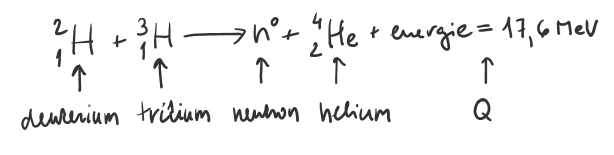 ²₁H + ³₁H ⟶ n⁰ + ⁴₂He + energie = 17,6 MeV
↑ ↑ ↑ ↑ ↑
deuterium tritium neutron helium Q